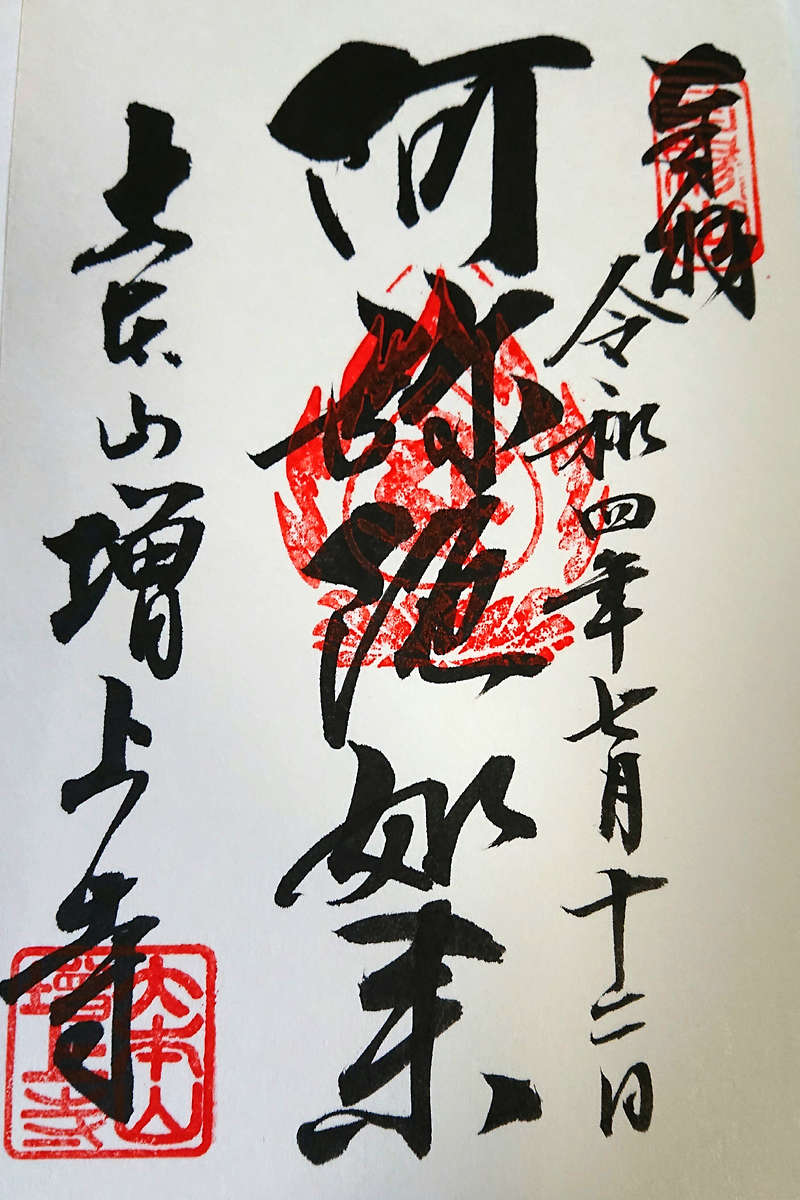 奉拝
令和四年七月十二日
阿弥陀如来
大本山増上寺
大本山
增上寺